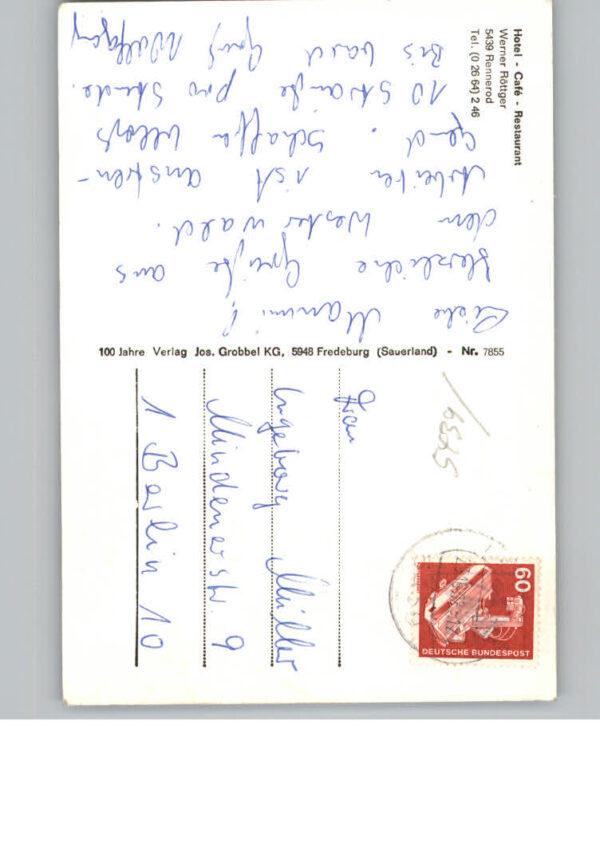 Hotel - Café - Restaurant
Werner Röttger
5439 Rennerod
Tel. (0 26 64) 2 46
Liebe Mammi!
Herzliche Grüße aus
dem Westerwald.
Arbeiten ist anstren-
gend. Schaffen
10 Sträuße pro Stunde.
Bis bald Gruß Wolfgang
100 Jahre Verlag Jos. Grobbel KG, 5948 Fredeburg (Sauerland) - Nr. 7855
Frau
Ingeborg Müller
Mindenerstr. 9
1 Berlin 10
60
DEUTSCHE BUNDESPOST